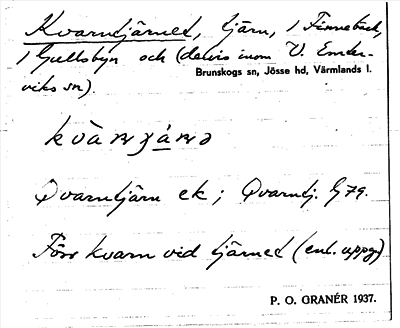 Kvarntjärnet, tjärn, i Finnebäck,
i Gullsbyn och (delvis inom V. Emter-
Brunskogs sn, Jösse hd, Värmlands l.
viks sn).
Qvarntjärn ek; Qvarntj. G 79.
Förr kvarn vid tjärnet (enl. uppg.)
P. O. GRANÉR 1937.